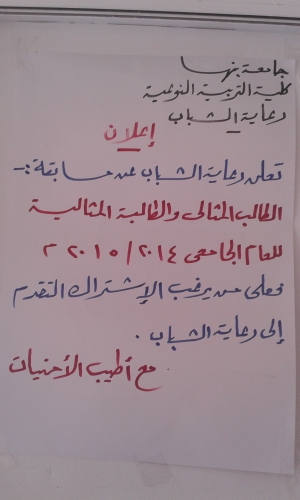 جامعة بنها
كلية التربية النوعية
رعاية الشباب
إعلان
تعلن رعاية الشباب عن مسابقة :-
الطالب المثالى والطالبة المثالية
للعام الجامعى ٢٠١٤ / ٢٠١٥ م
فعلى من يرغب الإشتراك التقدم
إلى رعاية الشباب .
مع أطيب الأمنيات